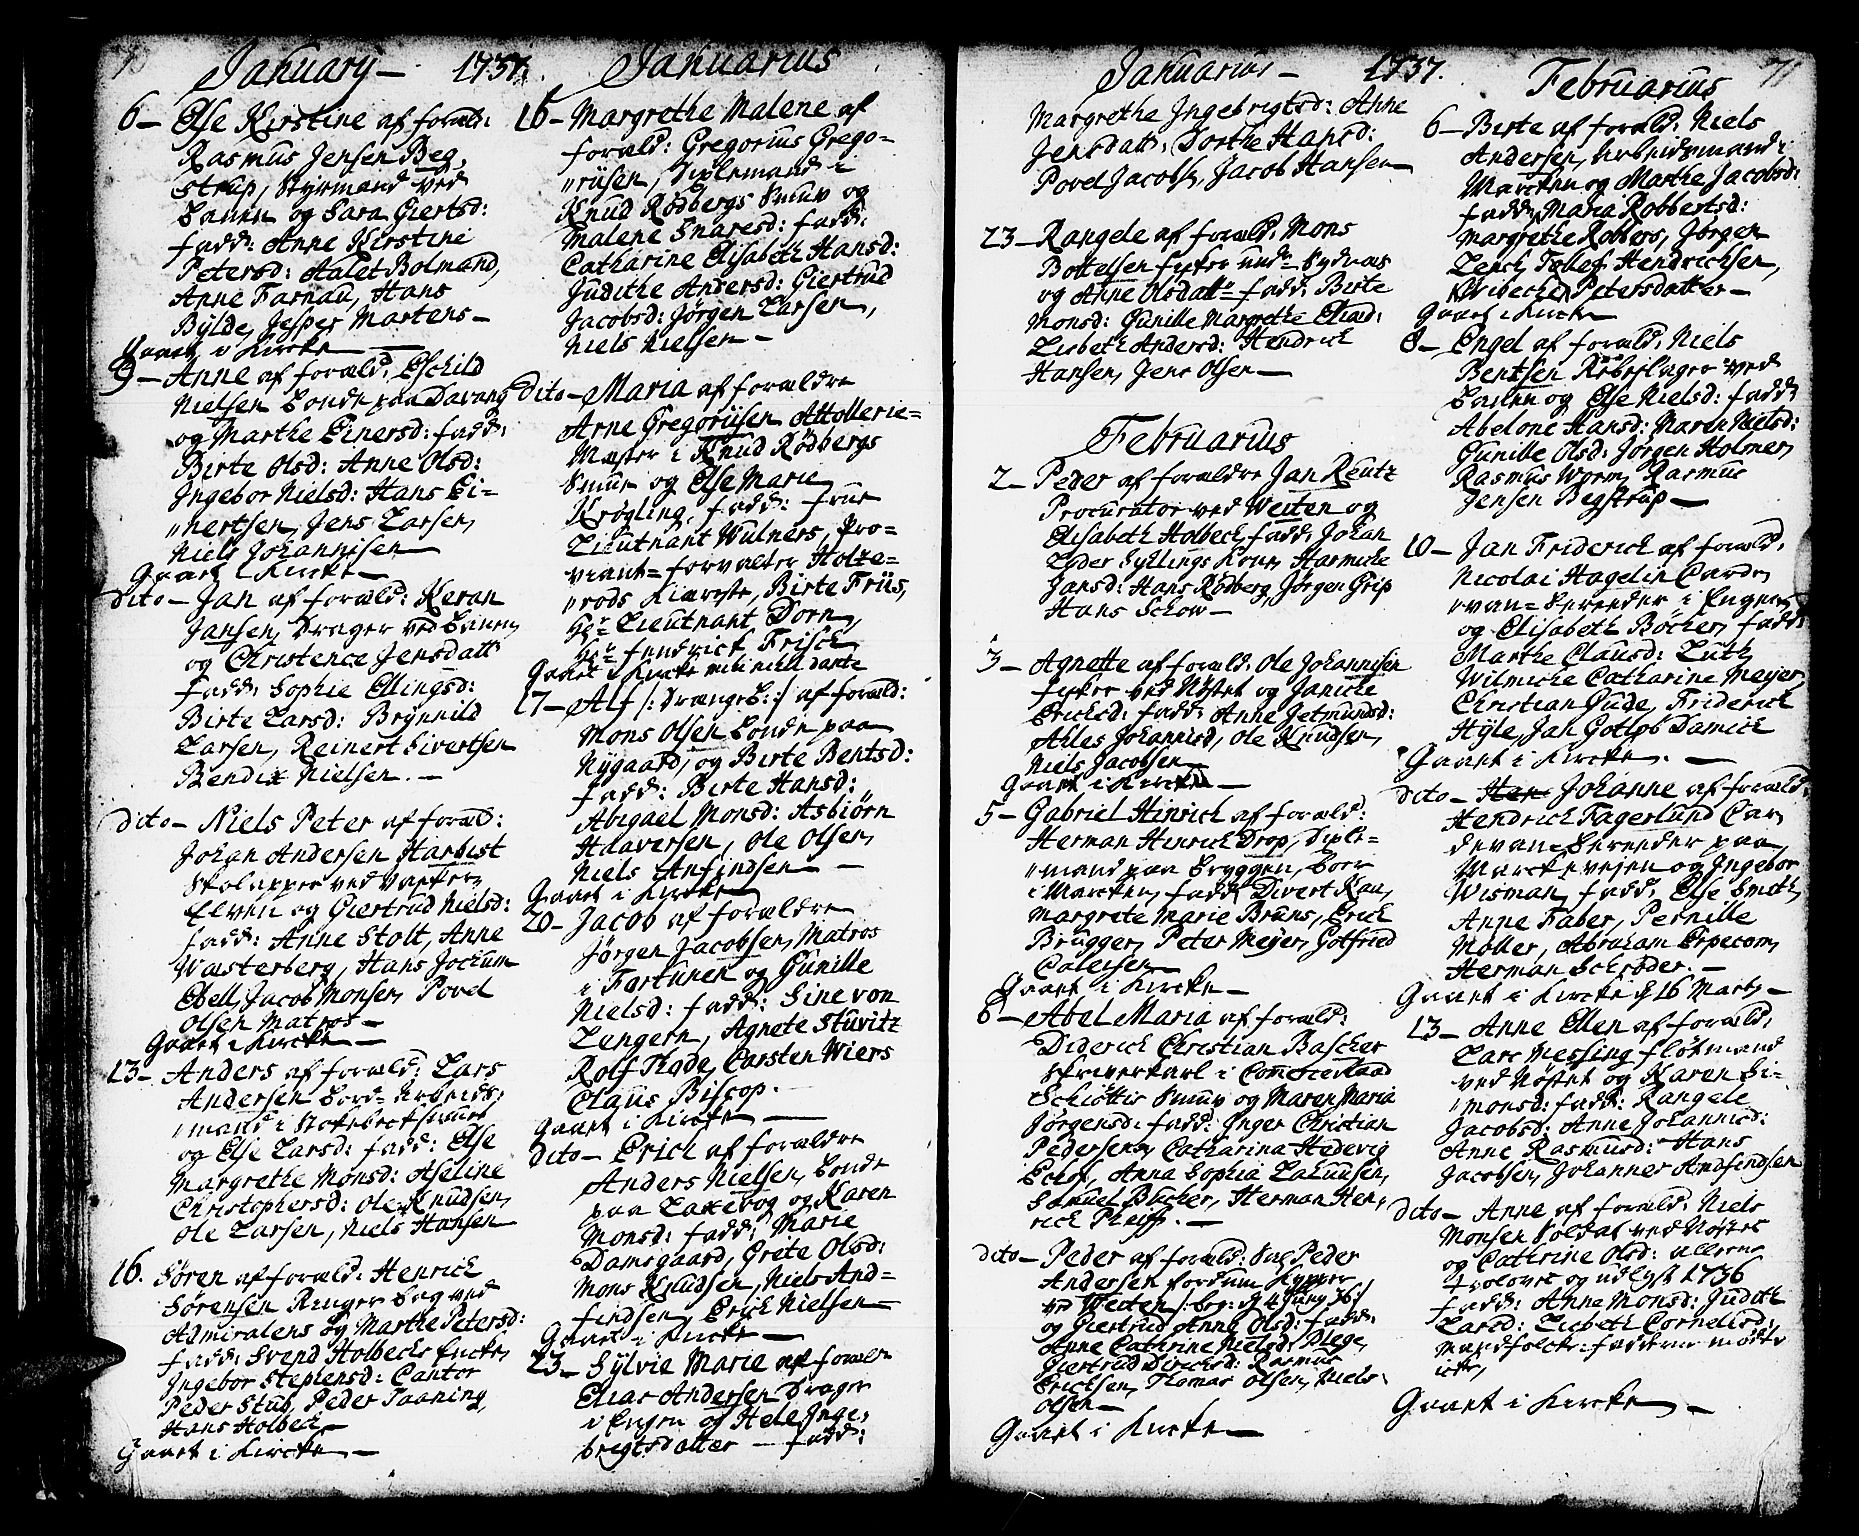 70
January - 1737.
6 - Else Kirstine af foræld:
Rasmus Jensen Beg,
strup, Styrmand ved
og Sara Giertsd:
fadd: Anne Kirstine
Petersd: Aalet Bolmand,
Anne Farnau, Hans
Bylde, Jesper Martens -
Gaaet i Kircke -
9 - Anne af foræld, Eschild
Nielsen Bonde paa Davang
og Marthe Einersd: fadd:
Birte Olsd: Anne Olsd:
Ingebor Nielsd: Hans Ei=
"nertsen, Jens Larsen,
Niels Johannisen
Gaaet i Kircke -
dito - Jan af foræld: Keran
Jansen, Drager ved
og Christence Jensdatt
fadd: Sophie Ellingsd:
Birte Larsd: Brynnild
Larsen, Reinert Sivertsen
Bendix Nielsen. -
dito - Niels Peter af foræld:
Johan Andersen Harbist
ved
Elven og Giertrud Nielsd:
fadd: Anne Stolt, Anne
Wæsterberg, Hans Jochum
Ebell, Jacob Monsen, Povel
Olsen Matros -
Gaaet i Kircke -
13 - Anders af foræld: Lars
Andersen Bord= Arbeids,
"mand i
og Else Larsd: fadd: Else
Margrethe Monsd: Aseline
Christophersd: Ole Knudsen,
Ole Larsen, Niels Hansen
16. Søren af foræld: Henrich
Sørensen ved
Admiralens og Marthe Petersd:
fadd: Svend Holbecks Encke,
Ingebor Stephensd: Cantor
Peder Stub, Peder Taaning,
Hans Holbeck -
Gaaet i Kircke -
Januarius
16 - Margrethe Malene af
foræld: Gregorius Grego=
"riisen, Diplemand i
Knud Rødbergs Smuv og
Malene Snaresd: fadd:
Catharine Elisabeth Hansd:
Judithe Andersd: Giertrud
Jacobsd: Jørgen Larsen,
Niels Nielsen -
dito - Maria af forældre
Arne Gregoriisen Attollerie=
Mæster i Knud Rødbergs
Smuv og Else Marie
Krøgling, fadd: frue
Lieutnant Wulners, Pro=
viant= forvalter Holtze=
"rods Kiæreste, Birte Friis,
Hr Lieutnant Dorn,
Hr fendrick Frisch
Gaaet i Kircke
17 - Alf /: Drænge B: / af foræld:
Mons Olsen Bonde paa
Nygaard, og Birte Bentsd:
fadd: Birte Hansd:
Abigael Monsd: Asbiørn
Halversen, Ole Olsen,
Niels Anfindsen -
Gaaet i Kircke
20 - Jacob af forældre
Jørgen Jacobsen, Matros
i Fortunen og Gunille
Nielsd: fadd: Sine von
Lengern, Agnete Stuvitz
Rolf Thode, Carsten Wiers
Claus Biscop.
Gaaet i Kircke -
dito - Erich af forældre
Anders Nielsen, Bonde
paa Laxevog og Karen
Monsd: fadd: Marie
Damsgaard, Grete Olsd:
Mons Knudsen, Niels And=
findsen, Erich Nielsen -
Gaaet i Kircke -
23 - Sylvie Marie af foræld:
Elias Andersen Drager
i Engen og Hele Inge,
brigtsdatter - fadd:
Januarius - 1737.
Margrethe Ingebrigtsd: Anne
Jensdatt, Dorthe Hansd:
Povel Jacobs, Jacob Hansen
23 - Rangele af foræld, Mons
Bottelsen fisker und= Sydnæs
og Anne Olsdatt= fadd: Birte
Monsd: Gunille Margrethe Eliasd:
Lisbeth Andersd: Hendrich
Hansen, Jens Olsen -
Februarius
2 - Peder af forældre Jan Reutz
Procurator ved Westen og
Elisabeth Holbeck, fadd: Johan
Lyder Fyllings Kone, Harmiche
Jansd: Hans Rødberg, Jørgen Grip
Hans Schow -
3 - Agnette af foræld: Ole Johannisen
fisker ved Nøstet og Janicke
Erichsd: fadd: Anne Jetmundsd:
Ahles Johannisd, Ole Knudsen,
Niels Jacobsen
Gaaet i Kircke -
5 - Gabriel Hinrich af foræld:
Herman Hinrich Drop, Diple=
"mand paa Bryggen,
i Marcken, fadd: Divert Kau,
Margrete Marie Bruns, Erich
Brugger, Peter Meyer, Gotfried
Calersen
Gaaet i Kircke -
6 - Abel Maria af foræld:
Diderich Christian Bascher
Skriverkarl i Commerceraad
Schiøttis Smuv og Maren Maria
Jørgensd: fadd: Inger Christian
Pedersens, Catharina Hedevig
Echof, Anna Sophia
Samuel Bucher, Herman Hen,
rick Pheiff. -
dito - Peder af foræld: Sal Peder
Andersen fordum
ved Westen /: beg: d 4 Juny 36: /
og Giertrud Anne Olsd: fadd:
Anne Cathrine Nielsd: Plege,
Giertrud Dirichsd: Rasmus
Erichsen, Thomas Olsen, Niels
Olsen -
Gaaet i Kircke -
71
Februarius
6 - Birte af foræld: Niels
Andersen, Arbeidsmand i
Marcken og Marthe Jacobsd:
fadd: Maria Robbertsd:
Margrethe Robbers, Jørgen
Lerch, Tollef Hendrichsen,
Wibeche Petersdatter -
Gaaet i Kircke
8 - Engel af foræld: Niels
Bentsen Røbeslager ved
og Else Nielsd: fadd:
Abelone Hansd: Maren Nielsd:
Gunille Olsd: Jørgen Holmer,
Rasmus Worm, Rasmus
Jensen Begstrup -
10 - Jan Friderich af foræld,
Nicolai Hagelin Carde,
"van= Bereeder i Engen,
og Elisabeth Böcher, fadd:
Marthe Clausd: Luth,
Wilmiche Catharine Meyer,
Christian Gude, Friderich
Hyle, Jan Gotlob Damich
Gaaet i Kircke. -
dito - Johanne af foræld:
Hendrich Fagerlund Car,
devan= Bereeder paa
Marckeveien og Ingebor
Wisman, fadd, Else Smith,
Anne Faber, Pernille
Møller, Abraham Erpecom,
Herman Schrøder. -
Gaaet i Kircke d 16 Marty -
13 - Anne Ellen af foræld,
Lars Messing fløtmand
ved Nøstet og Karen Si=
"monsd: fadd: Rangele
Jacobsd: Anne Johannisd:
Anne Rasmusd: Hans
Jacobsen, Johannes Andfindsen
dito - Anne af foræld: Niels
Monsen Soldat ved Nøstet
og Cathrine Olsd: allerene
trolovet og udlyst 1736
fadd: Anne Monsd: Judith
Larsd: Lisbeth Cornelisd:
Mandfolck: fadderne mødte
icke,
Gaaet i Kircke -